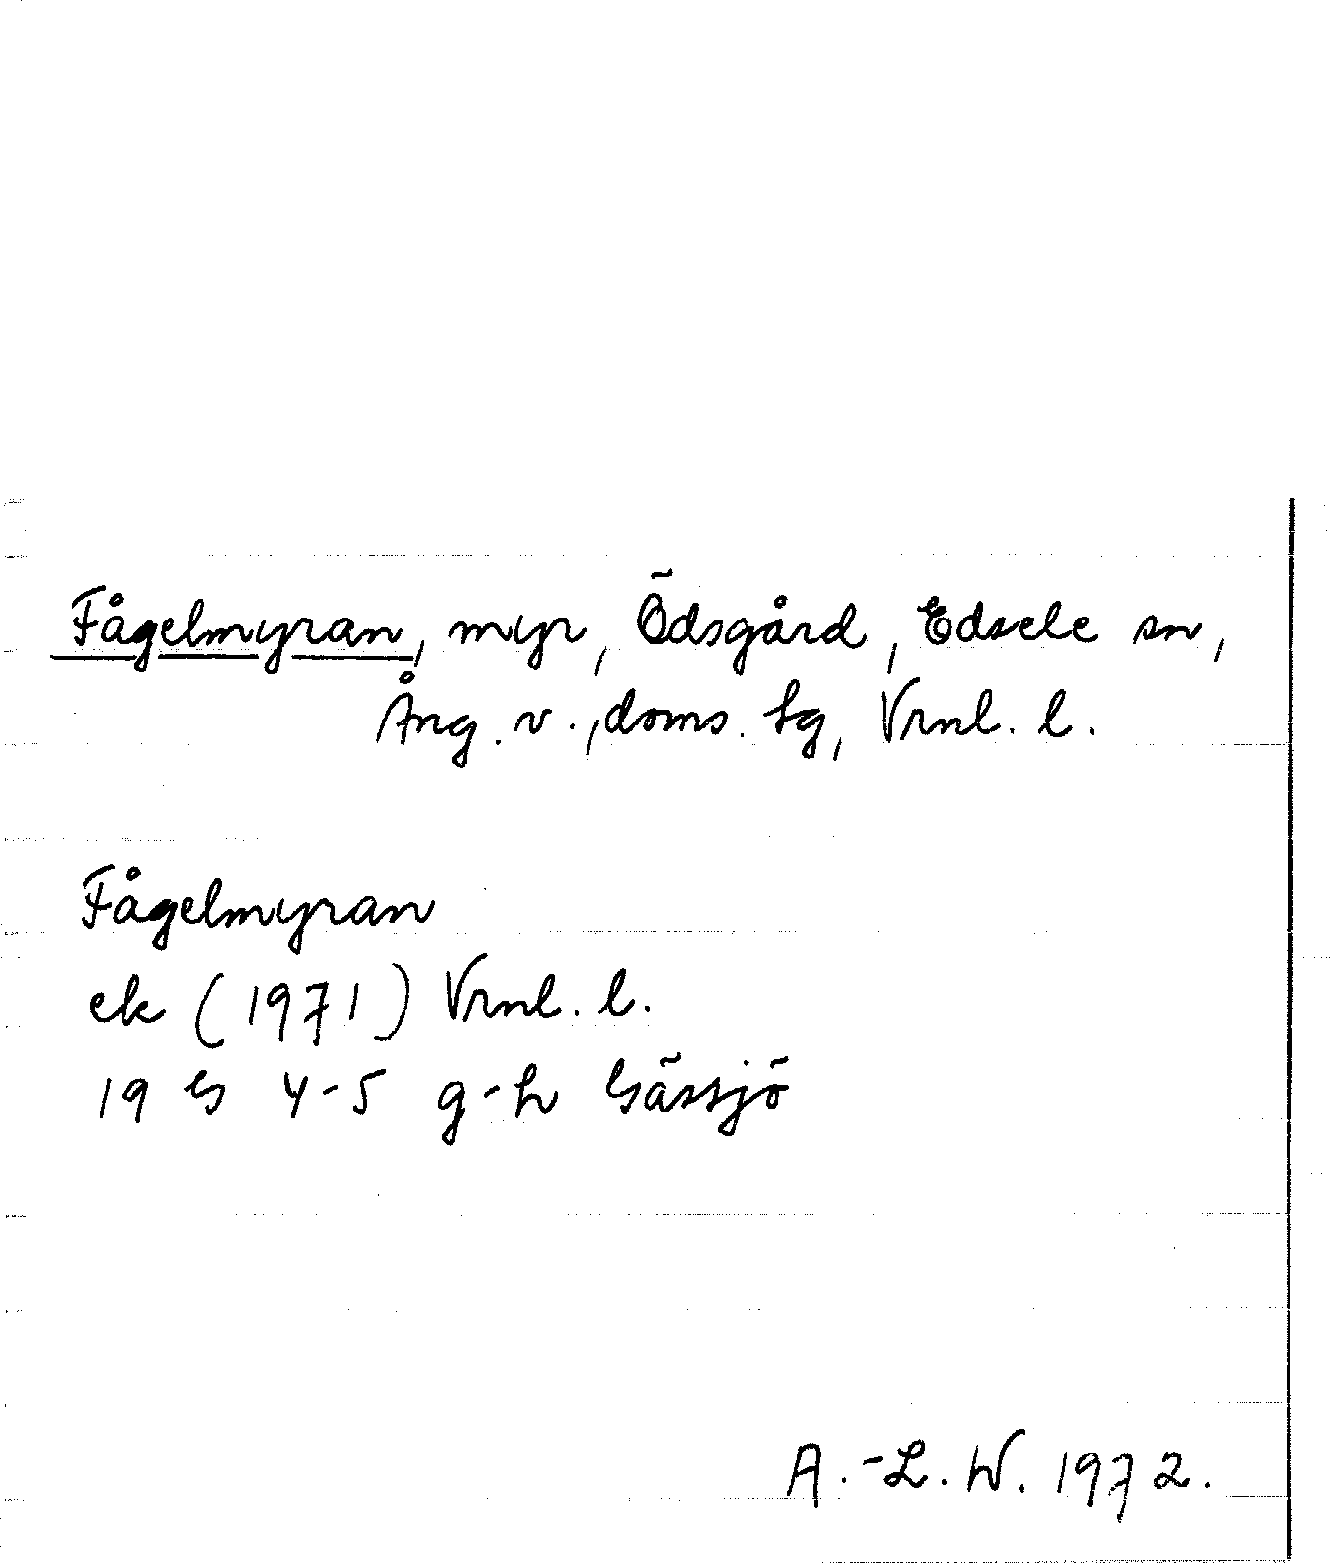 Fågelmyran, myr, Ödsgård, Edsele sn,
Ång. v., doms. tg, Vrnl. l.
Fågelmyran
ek (1971) Vrnl. l.
19 G 4-5 g-h Gässjö
A.-L. W. 1972.